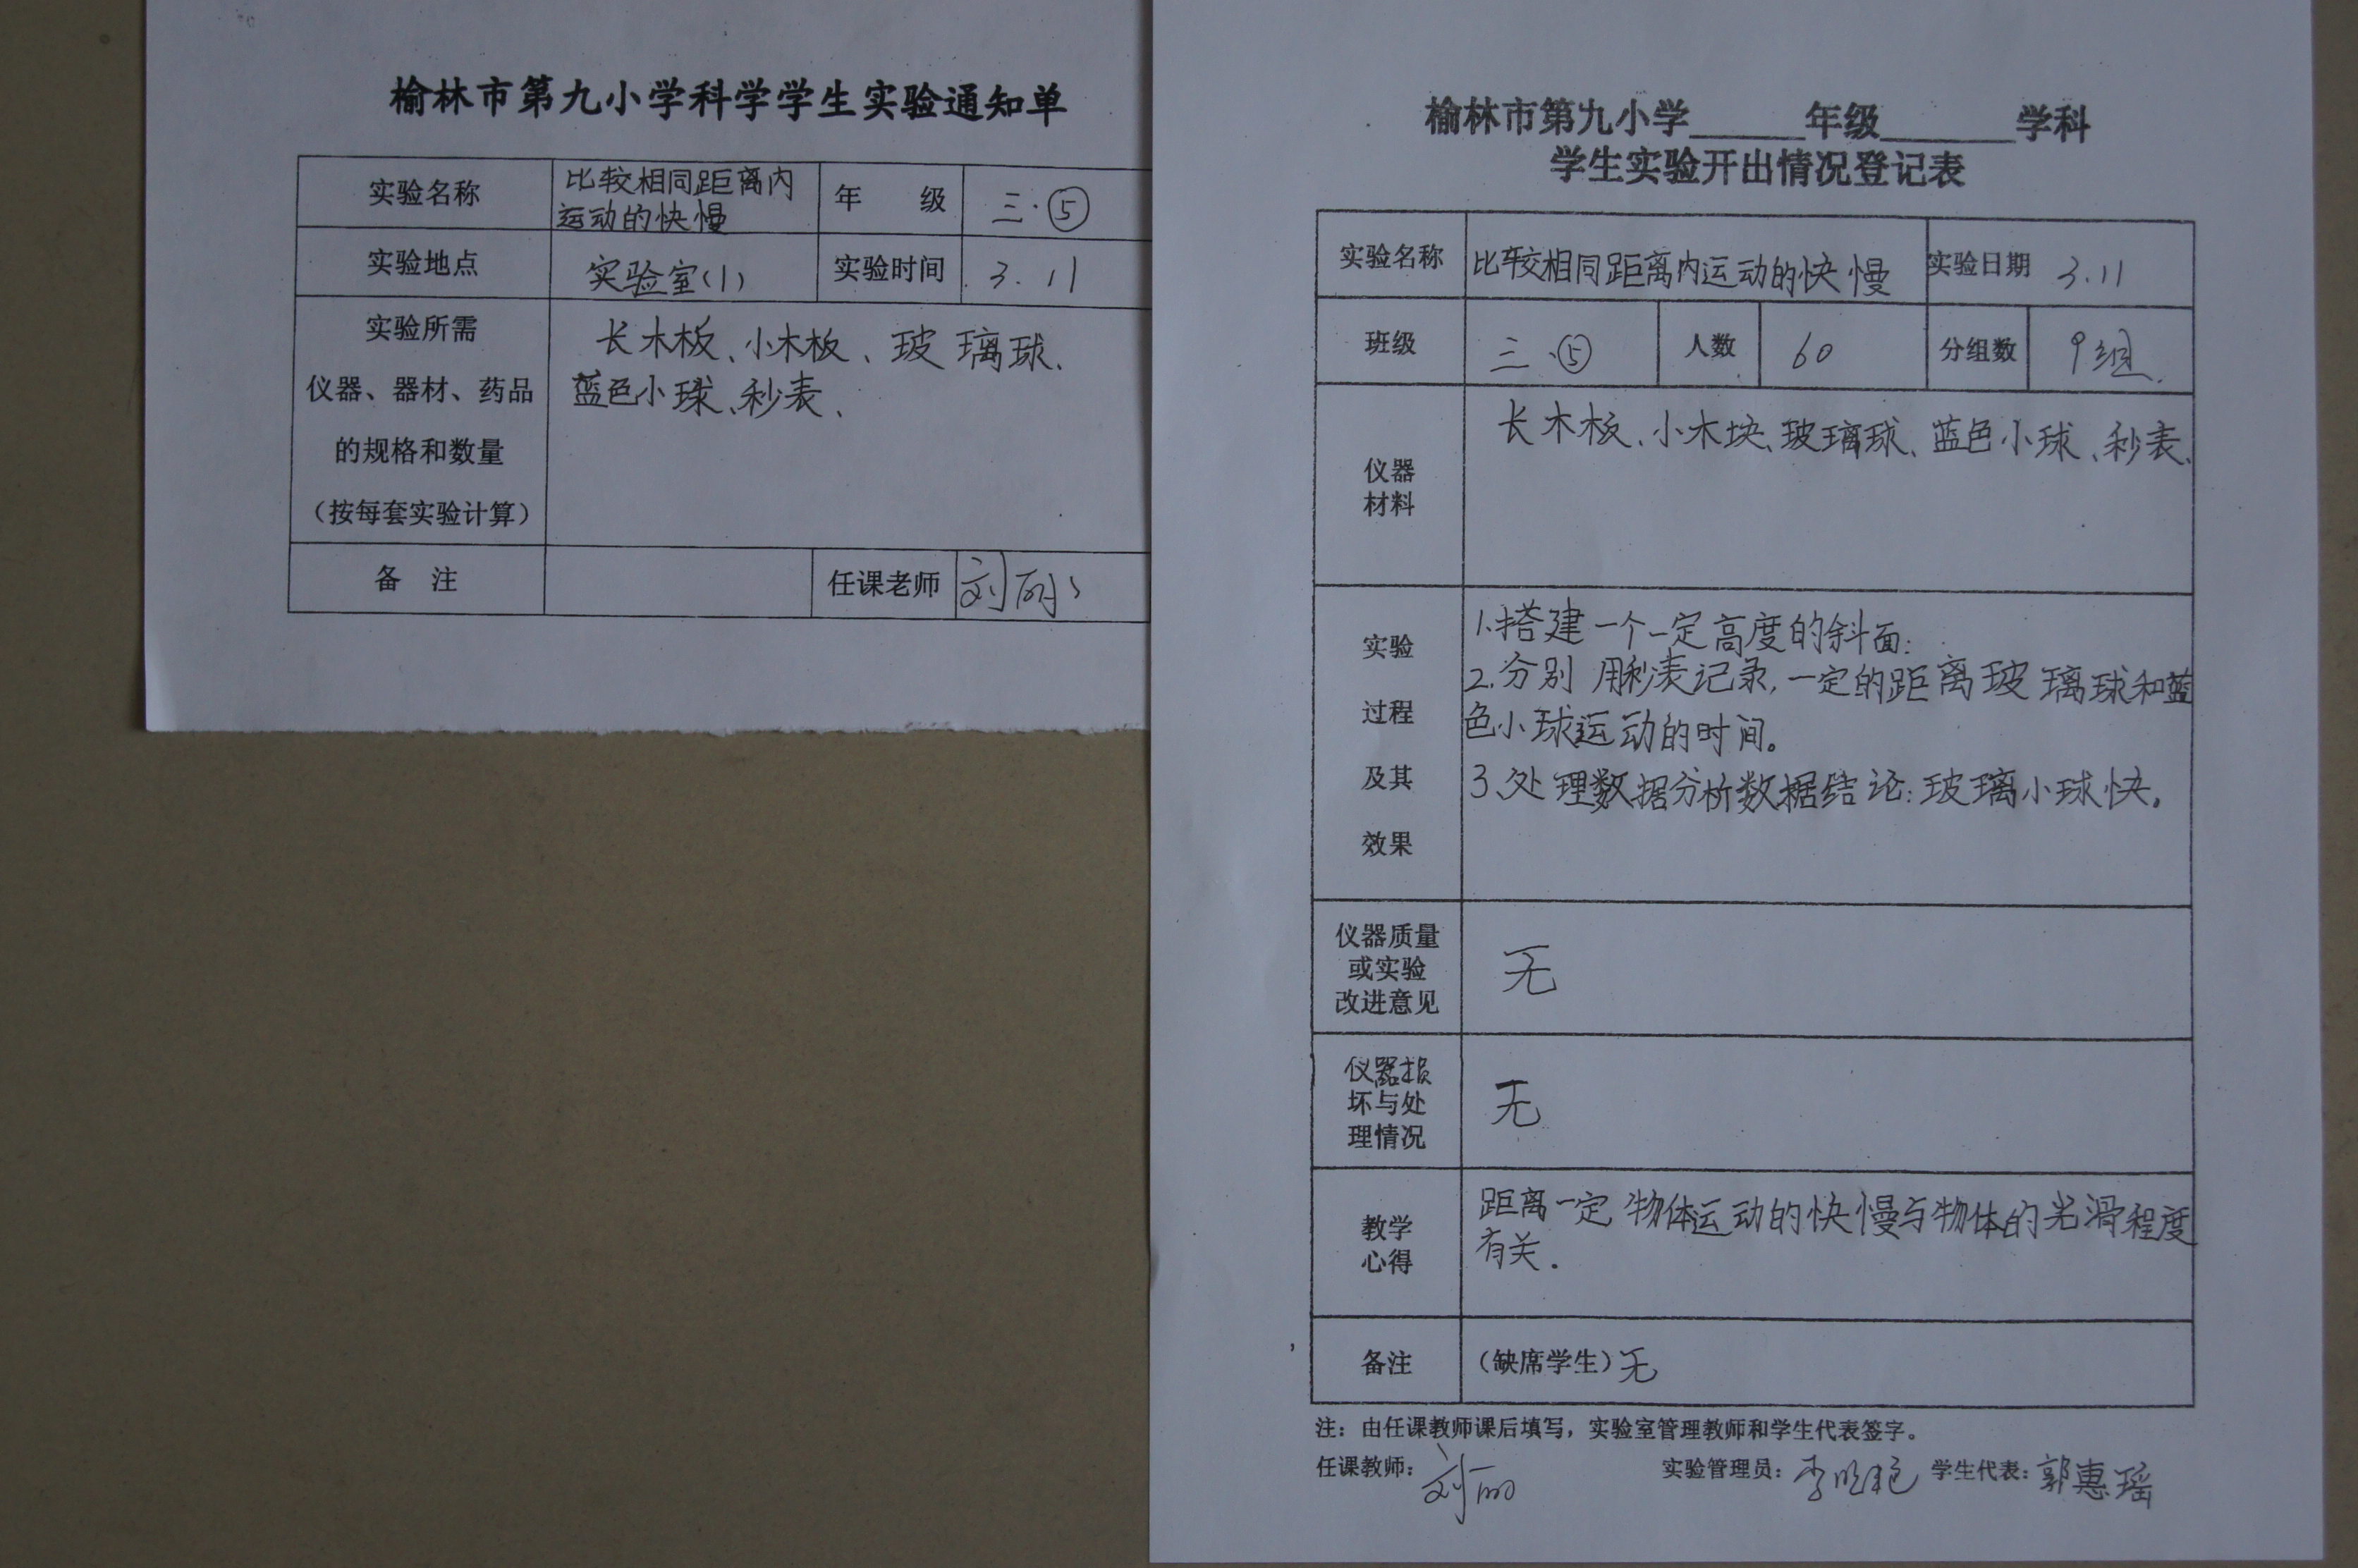 榆林市第九小学科学学生实验通知单
实验名称 比较相同距离内
运动的快慢 年 级 三·⑤
实验地点 实验室(1) 实验时间 3.11
实验所需
仪器、器材、药品
的规格和数量
(按每套实验计算)
长木板、小木板、玻璃球、
蓝色小球、秒表、
备 注 任课老师 刘丽
榆林市第九小学______年级_______学科
学生实验开出情况登记表
实验名称 比较相同距离内运动的快慢 实验日期 3.11
班级 三·⑤ 人数 60 分组数 9组
仪器
材料
长木板、小木块、玻璃球、蓝色小球、秒表、
实验
过程
及其
效果
1.搭建一个一定高度的斜面:
2.分别 用秒表记录,一定的距离玻璃球和蓝
色小球运动的时间。
3、处理数据分析数据结论:玻璃小球快。
仪器质量
或实验
改进意见
无
仪器损
坏与处
理情况
无
教学
心得
距离一定 物体运动的快慢与物体的光滑程度
有关.
备注 (缺席学生)无
注:由任课教师课后填写,实验室管理教师和学生代表签字。
任课教师: 刘丽 实验管理员: 学生代表: 郭惠瑶